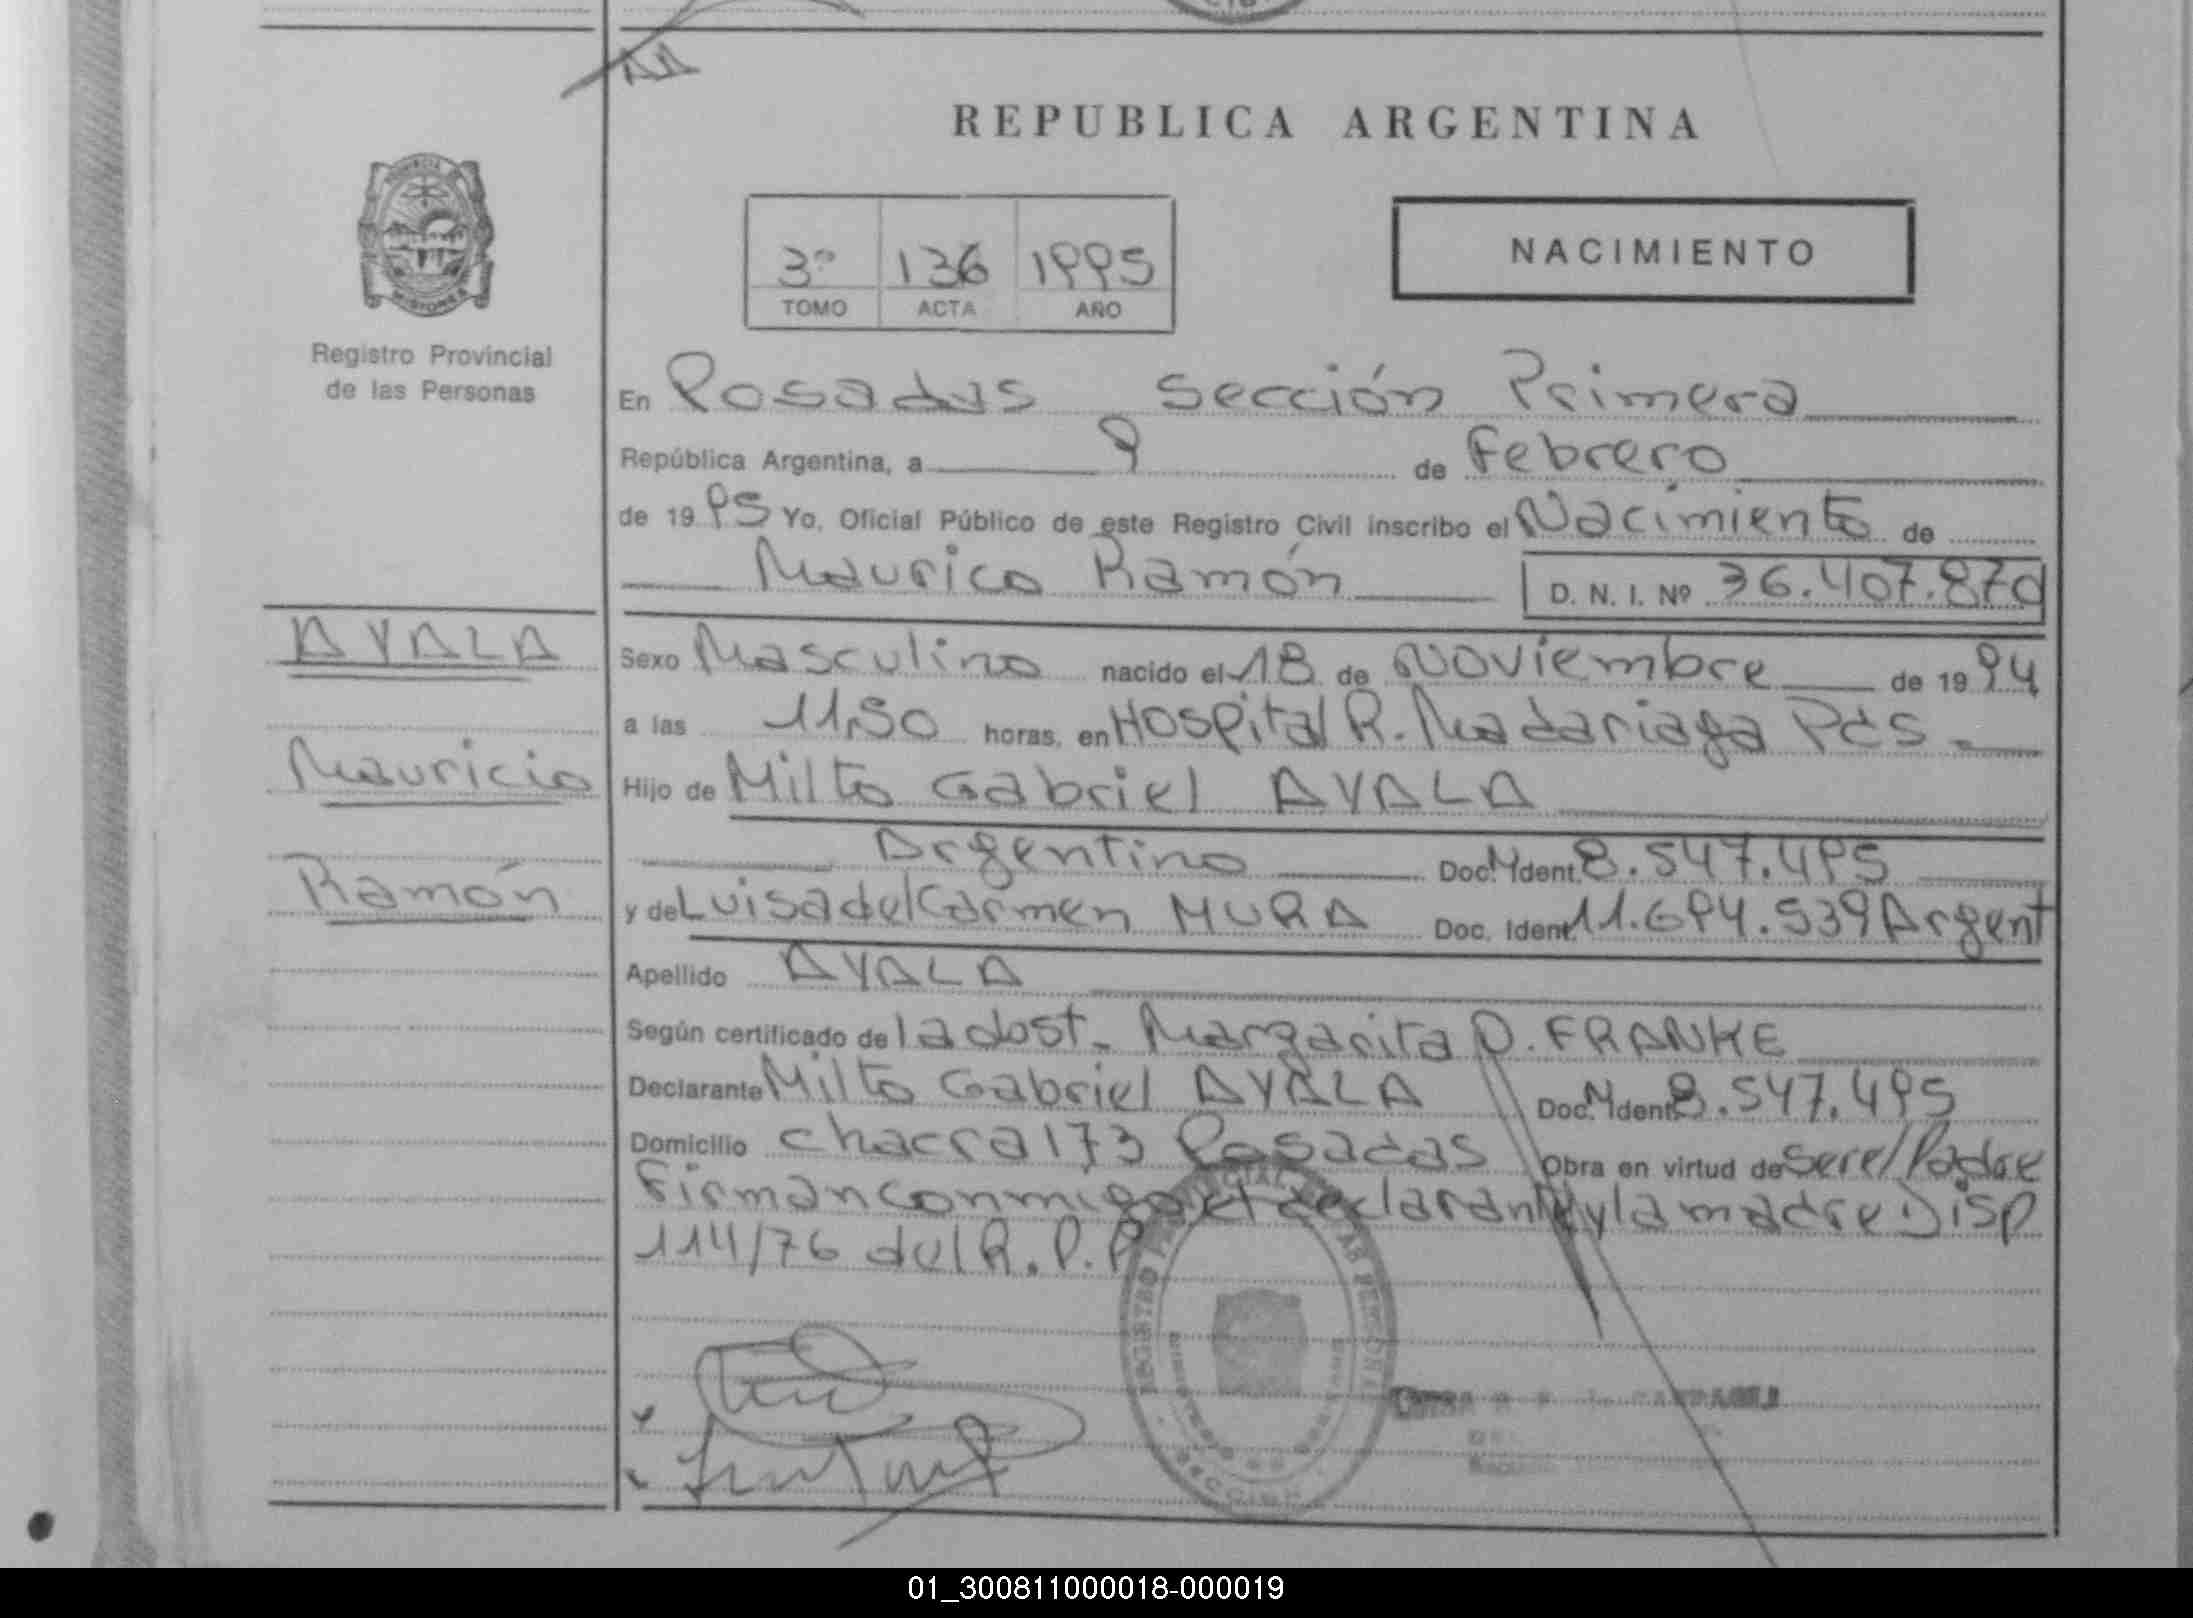 REPUBLICA ARGENTINA
NACIMIENTO
3º 136 1995
TOMO ACTA AÑO
PROVINCIA DE
MISIONES
Registro Provincial
de las Personas
En Posadas Sección Primera
República Argentina, a 9 de Febrero
de 1995 Yo, Oficial Público de este Registro Civil inscribo el Nacimiento de
Maurico Ramón D. N. I. Nº 36.407.870
AYALA
Mauricio
Ramón
Sexo Masculino nacido el 18 de Noviembre de 1994
a las 11,50 horas, en Hospital R. Madariaga Pdas.
Hijo de Milto Gabriel AYALA
Argentino Doc. M Ident. 8.547.495
y de Luisa del Carmen MURA Doc. Ident. 11.694.539 Argent
Apellido AYALA
Según certificado de la obst. Margarita D. FRANKE
Declarante Milto Gabriel AYALA Doc. M Ident. 8.547.495
Domicilio chacra 173 Posadas Obra en virtud de ser el Padre
Firman conmigo el declarante y la madre Disp
114/76 del R. P. P
REGISTRO PROVINCIAL DE LAS PERSONAS
SECCION
01_300811000018-000019